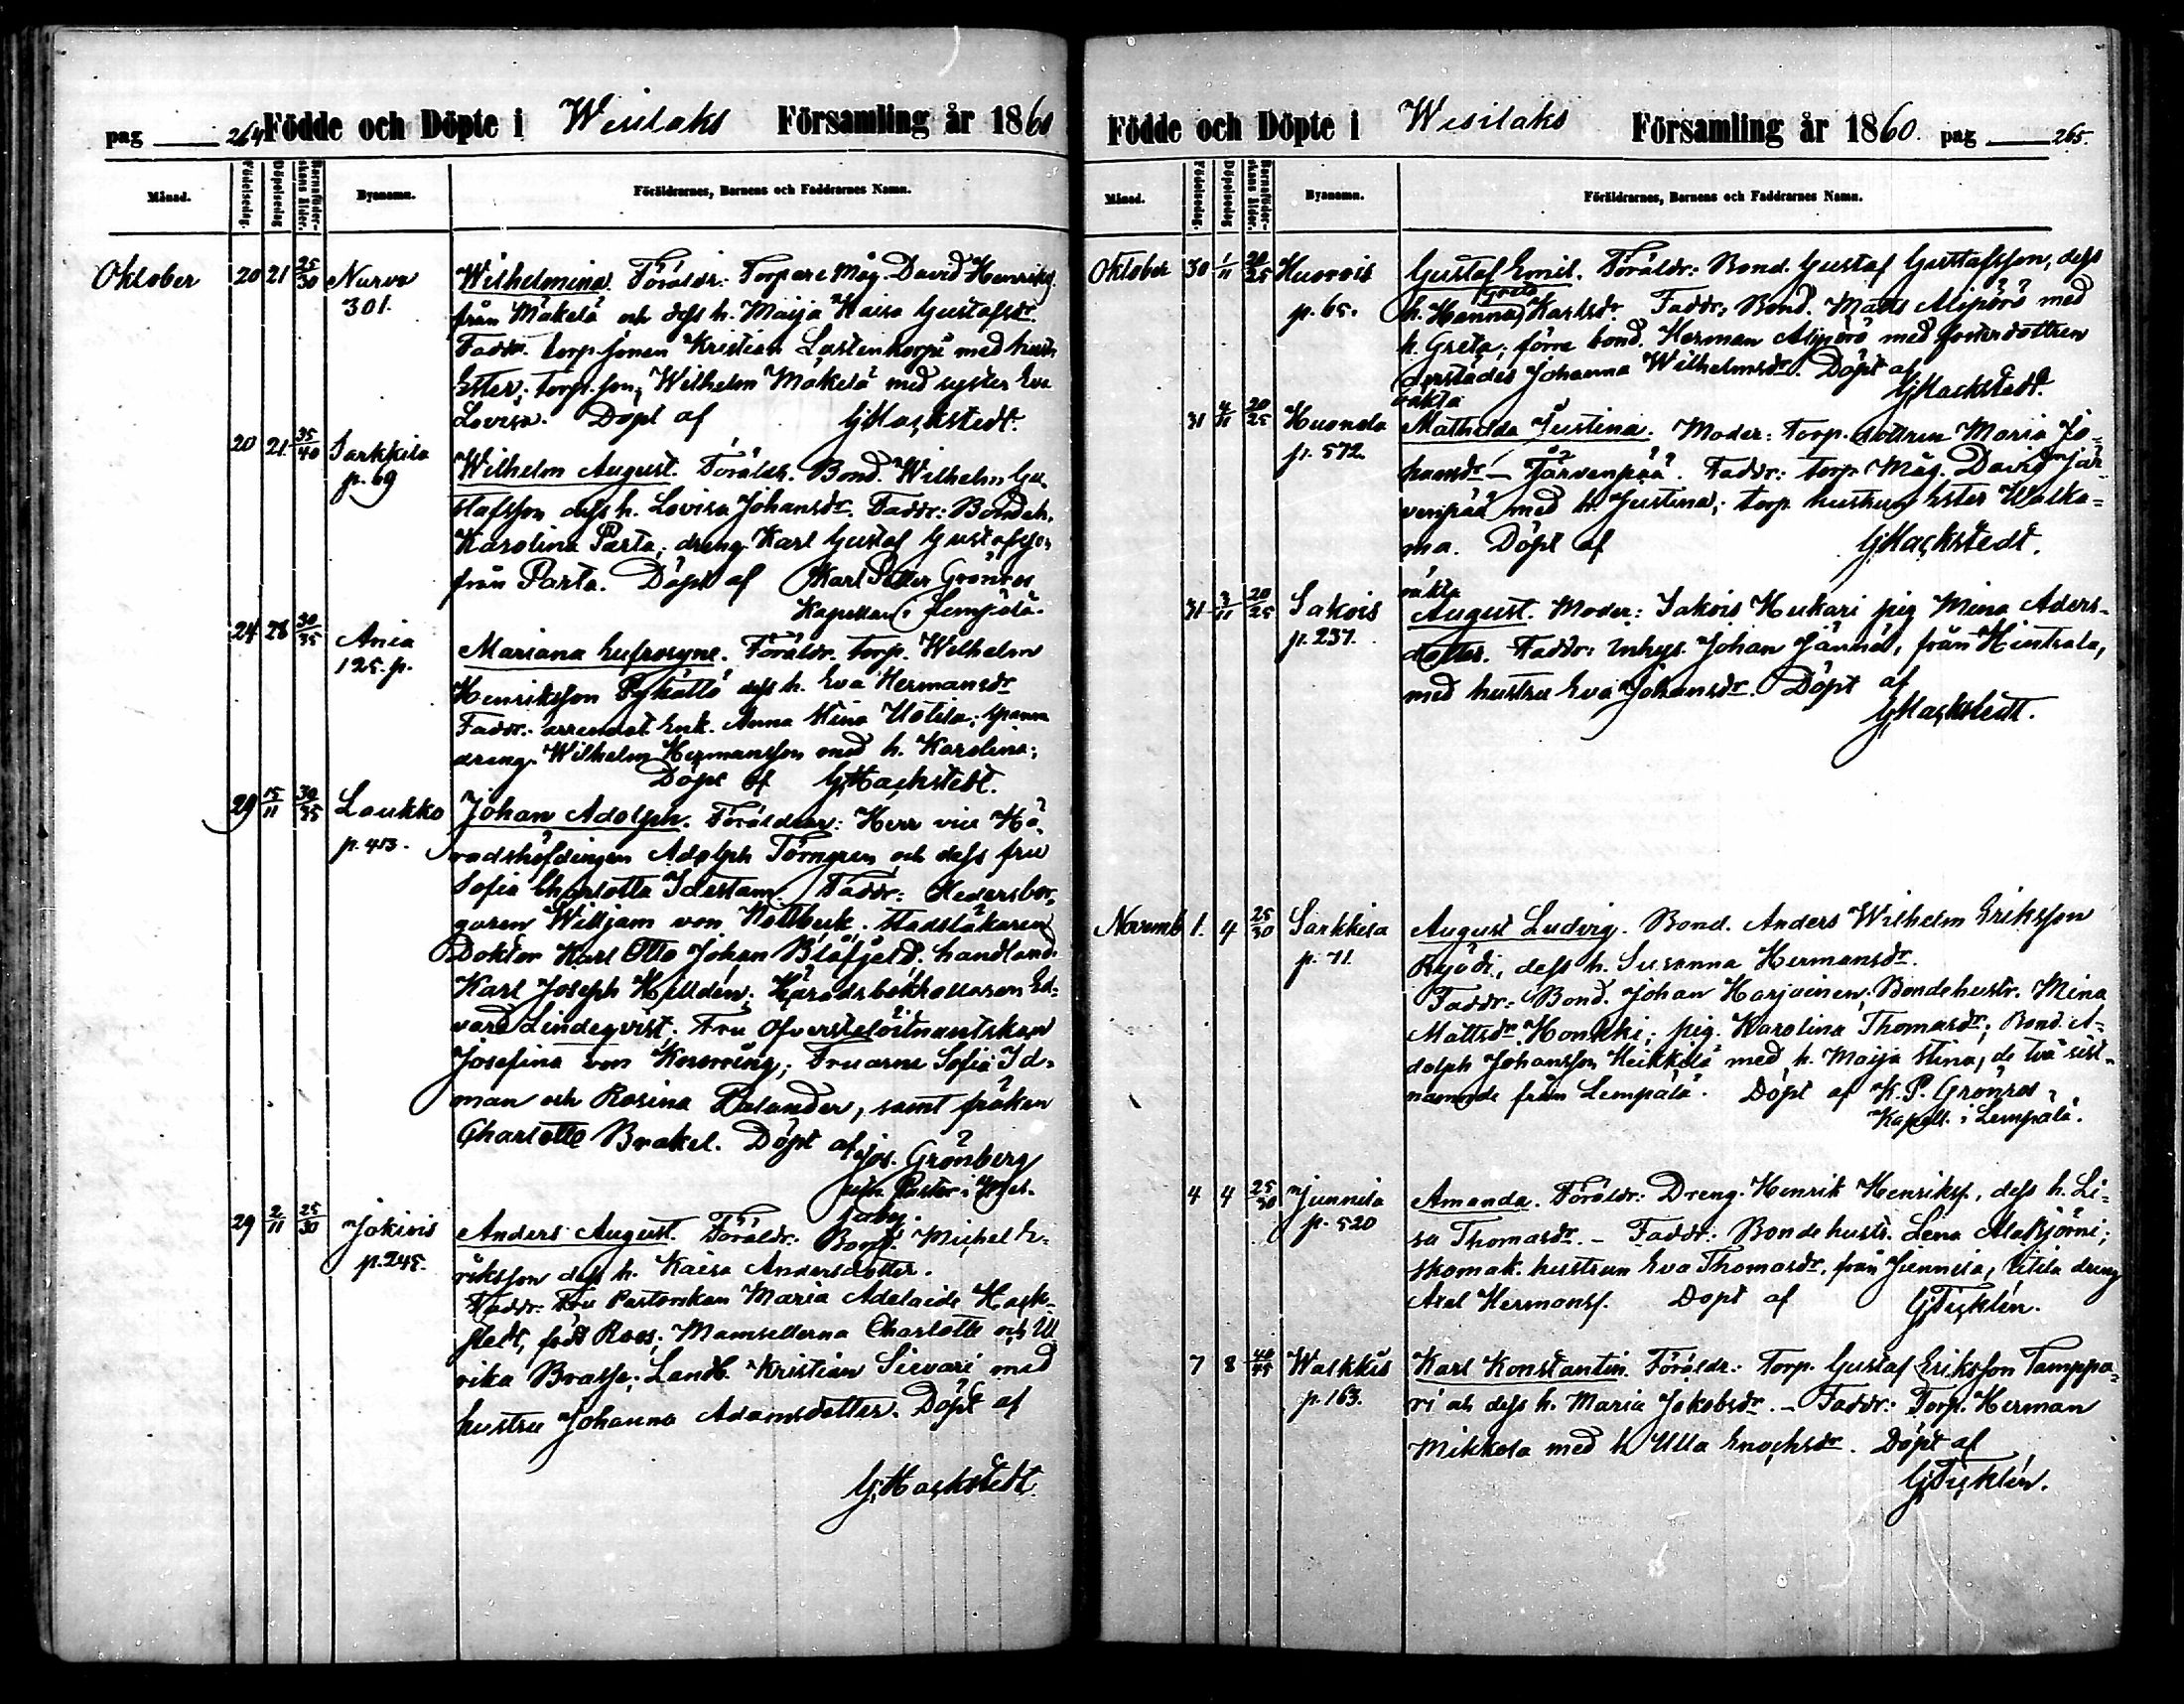 pag 264 Födde och Döpte i Wesilaks Församling år 1860
Månad. Födelsedag. Döpelsedag Barnaföder-skans ålder. Byanamn. Föräldrarnes, Barnens och Faddrarnes Namn.
Oktober 20 21 25/30 Nurva Wilhelmina. Föräldr: Torpare Måg. David Henriks.
301. från Mäkelä och dess h. Maija Kaisa Gustafsdr.
Faddr. torp sonen Kristian Lastentorpi med hustr.
Ester; torp. son, Wilhelm Mäkelä med syster Eva
Lovisa. Döpt af G Hackstedt.
20 21 35/40 Sarkkila
p. 69 Wilhelm August. Föräldr. Bond. Wilhelm Gu-
stafsson dess h. Lovisa Johansdr. Faddr: Bondeh.
Karolina Parta; dreng. Karl Gustaf Gustafsson
från Parta. Döpt af Karl Petter Grönros
Kapellan i Lempälä.
24 28 30/35 Ania
125. p. Mariana Eufrosyne. Föräldr. torp. Wilhelm
Henriksson dess h. Eva Hermansdr
Faddr: arrendat. Enk. Anna Stina Uotila; spanm
dreng. Wilhelm Hermansson med h. Karolina;
Döpt af G Hackstedt.
29 15/11 30/35 Laukko Johan Adolph. Föräldrar: Herr vice Hä-
p. 413. radshöfdingen Adolph Törngren och dess fru
Sofia Charlotta Idestam. Faddr: Hedersbor-
garen Willjam von Nottbeck. Stadsläkaren
Doktor Karl Otto Johan Blåfjeld. handland.
Karl Joseph Hilldén; Häradsbokhållaren Ed-
vard Lindeqvist. Fru Öfverstelöitnantskan
Josefina von; Fruarne Sofia Id-
man och Rosina Palander, samt fröken
Charlotte Brakel. Döpt af Jos. Grönberg
Pastor i
29 2/11 25/30 Jokiois Anders August. Föräldr. Bond. Michel E-
p. 245. riksson dess h. Kaisa Andersdotter.
Faddr: Fru Pastorskan Maria Adelaide Hack-
stedt, född Roos; Mamsellerna Charlotte och Ul
rika Brasse; Landb. Kristian Sievari med
hustru Johanna Adamsdotter. Döpt af
G Hackstedt.
Födde och Döpte i Wesilaks Församling år 1860. pag 265.
Månad. Födelsedag. Döpelsedag Barnaföder-skans ålder. Byanamn. Föräldrarnes, Barnens och Faddrarnes Namn.
Oktober 30 1/11 20/25 Huorois Gustaf Emil. Föräldr: Bond. Gustaf Gusttafsson, dess
Greta
p. 65. h. Hanna Karlsdr. Faddr: Bond. Matts Alipörö med
h. Greta; förre bond. Herman Alipörö med fosterdottren
derstädes Johanna Wilhelmsdr. Döpt af
G Hackstedt.
oäkta
31 4/11 20/25 Huonola Mathilda Justina. Moder: Torp. dottren Maria Jo-
p. 572. hansdr – Järvenpää. Faddr: torp. Måg. David Jär
venpää med h. Justina; torp. hustrun Ester Walka-
ma. Döpt af G Hackstedt.
oäkta
31 3/11 20/25 Sakois August. Moder: Sakois Hukari pig Mina Aders-
p. 237. dotter. Faddr: Inhys. Johan, från Hintsala,
med hustru Eva Johansdr. Döpt af
G Hackstedt.
Novemb 1. 4 25/30 Sarkkila August Ludvig. Bond. Anders Wilhelm Eriksson
p. 71. dess h. Susanna Hermansdr.
Faddr: Bond. Johan Harjoinen; Bondehustr. Mina
Mattsdr Honkki; pig. Karolina Thomasdr; Bond. A-
dolph Johansson Heikkilä med h. Maija Stina, de två sist-
nämnde från Lempälä. Döpt af K. P. Grönros
Kapell. i Lempälä.
4 4 25/30 Junnila Amanda. Föräldr: Dreng. Henrik Henrikss, dess h. Li-
p. 520 sa Thomasdr. – Faddr: Bondehustr. Lena Alakjörni;
skomak. hustrun Eva Thomasdr, från Junnila, Utila dreng
Axel Hermanss. Döpt af G Ticklén.
7 8 40/45 Walkkis Karl Konstantin. Föräldr: Torp. Gustaf Eriksson Tamppa-
p. 163. ri och dess h. Maria Jakobsdr. – Faddr: Torp. Herman
Mikkola med h Ulla Enochsdr. Döpt af
G Ticklén.